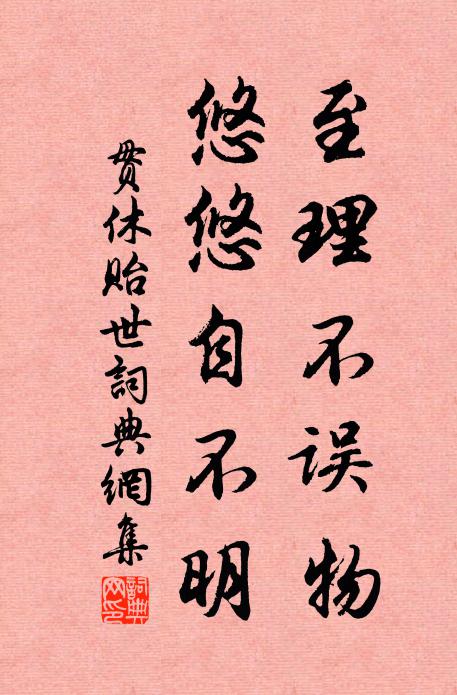 至理不误物
悠悠自不明
贯休贻世詞典網集
詞典網印